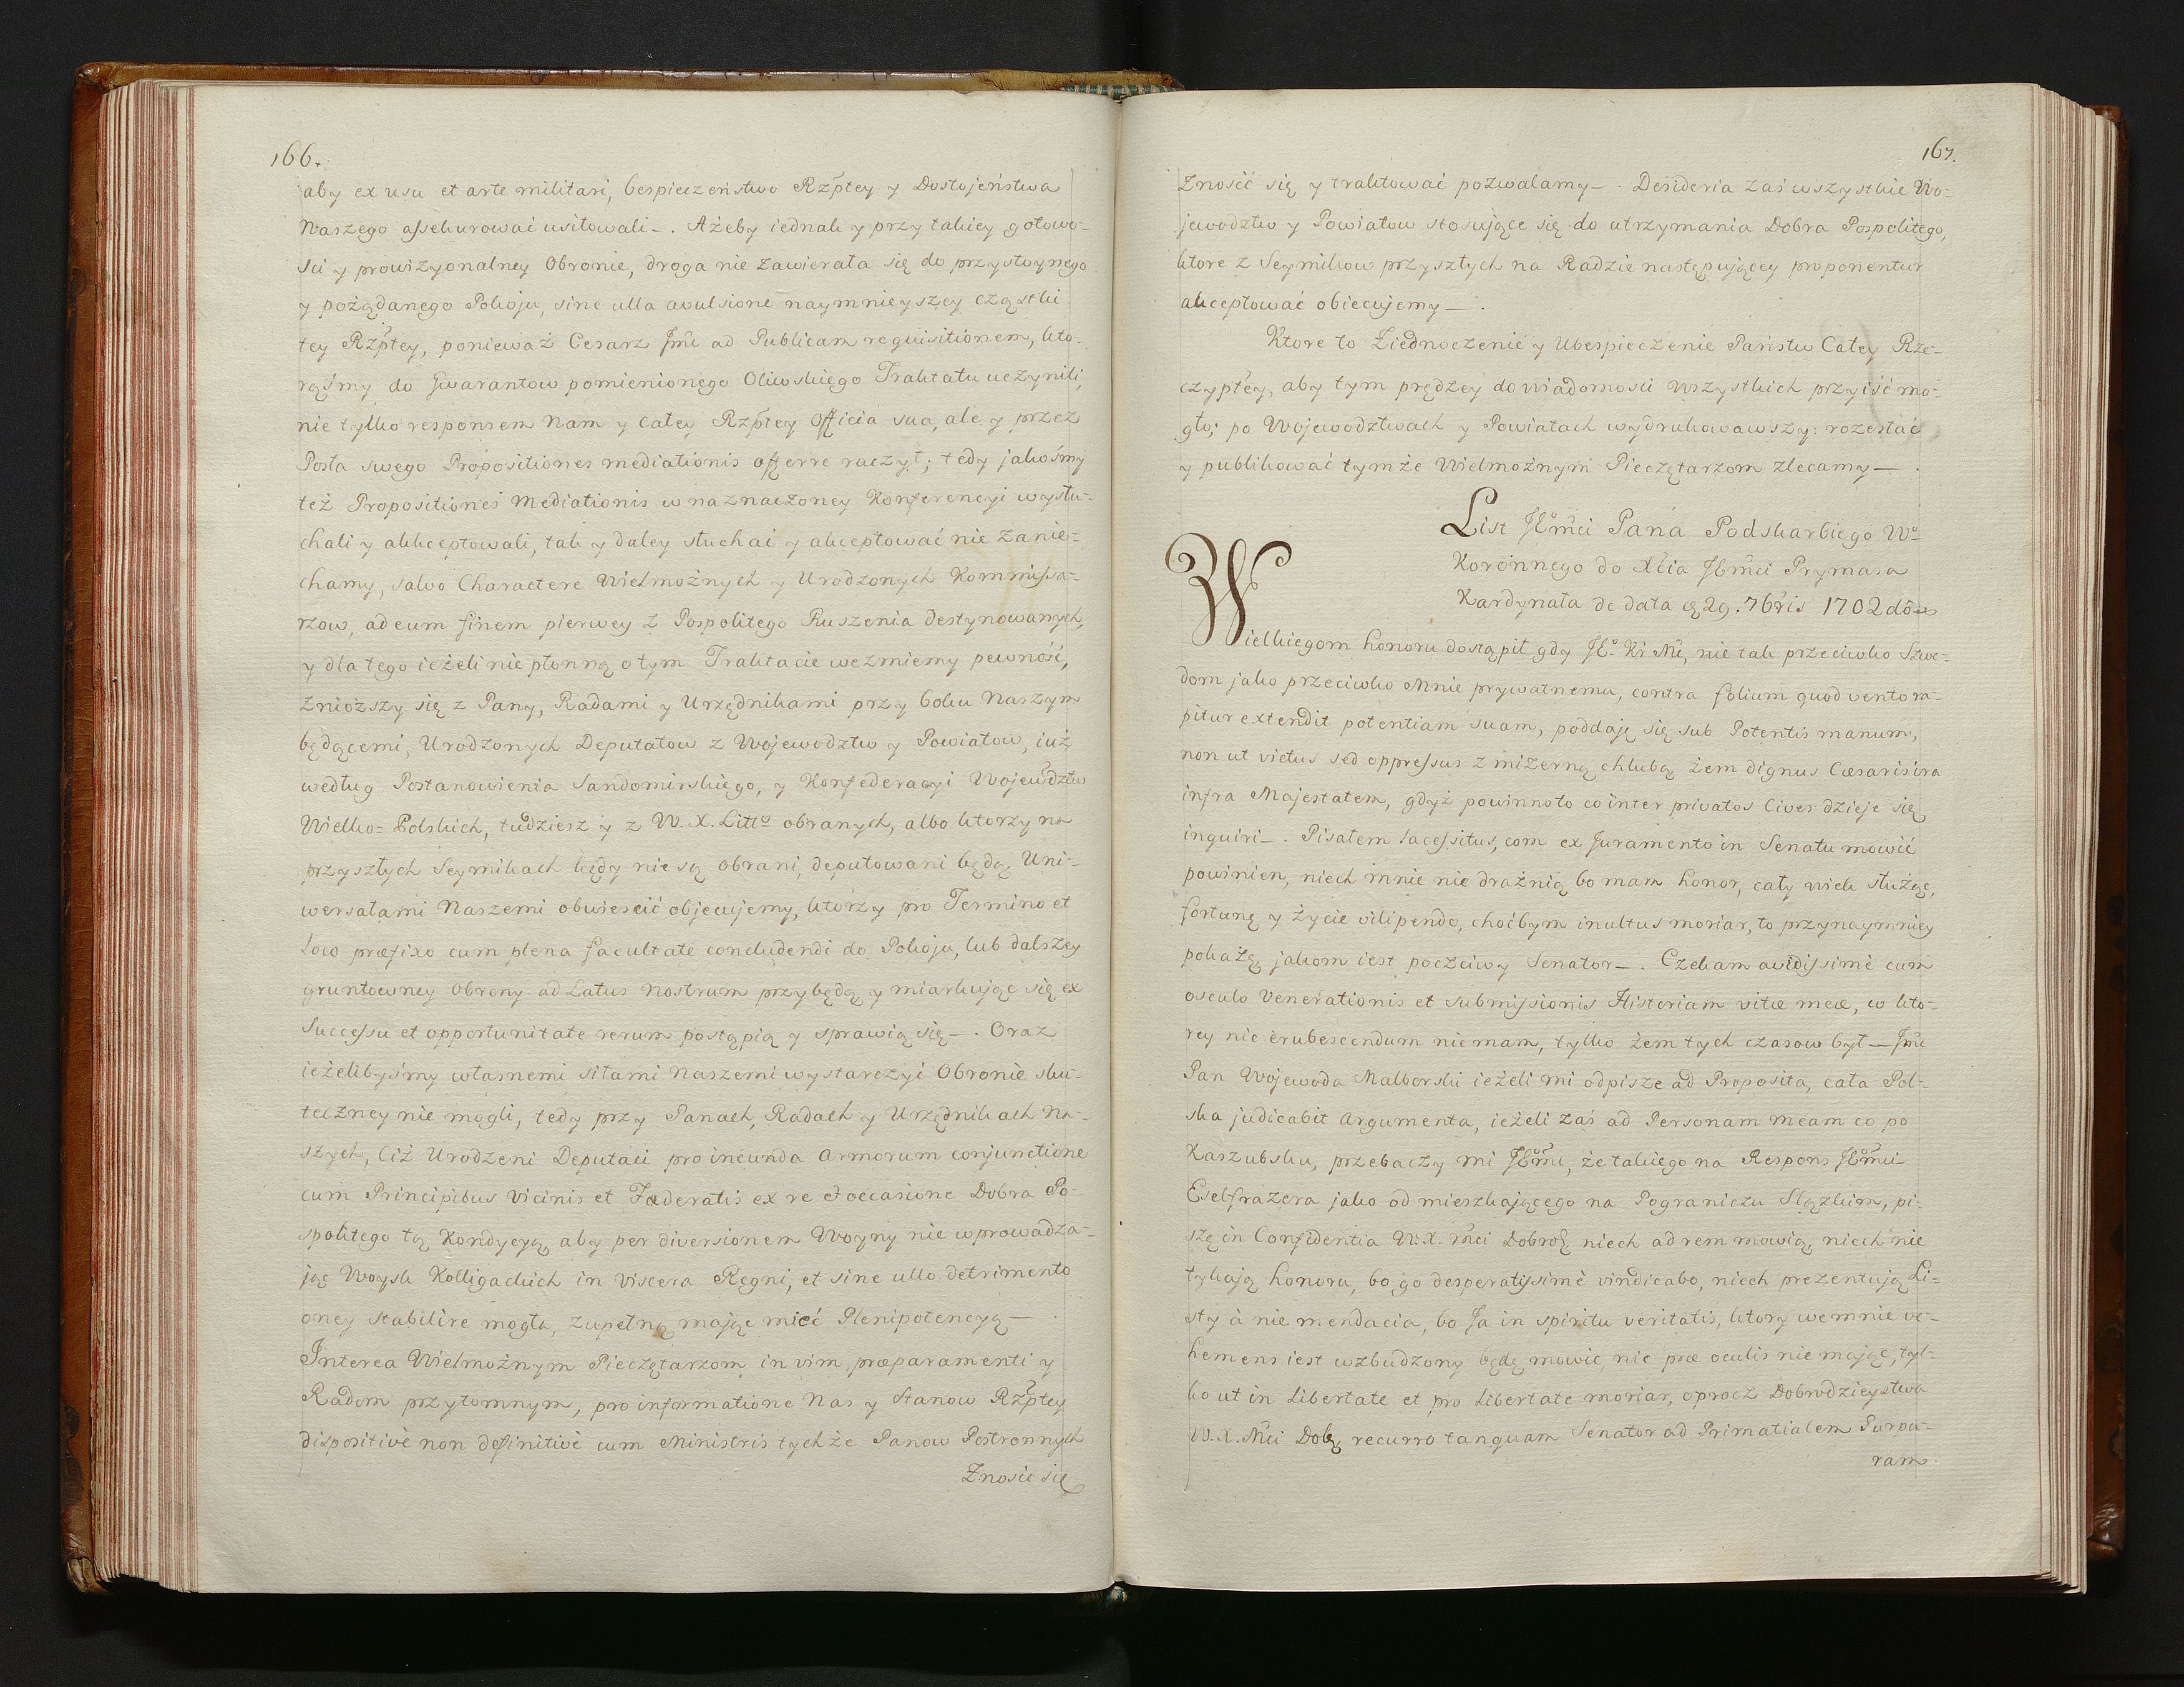 166.
aby ex usu et arte militari, bespieczeństwo Rzptey y Dostojeństwa
Naszego assekurować usitowali_. Ażeby iednak y przy takiey gotowo-
ści y prowizyonalney Obronie, droga nie zawierała się do przystoynego
y pożądanego Pokoju, sine ulla avulsione naymnieyszey cząstki
tey Rzptey, ponieważ Cesarz Jmć ad Publicam requisitionem, kto-
rąśmy do Gwarantow pomienionego Oliwskiego Traktatu uczynili,
nie tylko responsem Nam y całey Rzptey Officia sua, ale y przez
Posła swego Propositiones mediationis offerre raczył; tedy jakośmy
też Propositiones Mediationis w naznaczoney Konferencyi wysłu-
chali y akkceptowali, tak y daley słuchać y akceptować nie zanie-
chamy, salvo Charactere Wielmożnych y Urodzonych Kommissa-
rzow, ad eum finem pierwey z Pospolitego Ruszenia destynowanych,
y dla tego ieżeli nie płonną o tym Traktacie weźmiemy pewność,
Zniozszy się z Pany, Radami y Urzędnikami przy boku Naszym
będącemi, Urodzonych Deputatow z Wojewodztw y Powiatow, iuż
według Postanowienia Sandomirskiego, y Konfederacyi Wojewodztw
Wielko-Polskich, tudziesz y z W. X. Litto obranych, albo ktorzy na
przyszłych Seymikach kędy nie są obrani, deputowani będą, Uni-
wersałami Naszemi obwieścić objecujemy, ktorzy pro Termino et
loco præfixo cum plena facultate concludendi do Pokoju, lub dalszey
gruntowney Obrony ad Latus Nostrum przybędą y miarkując się ex
Successu et opportunitate rerum postąpią y sprawią się_. Oraz
ieżelibyśmy własnemi siłami Naszemi wystarczyć Obronie sku-
teczney nie mogli, tedy przy Panach, Radach y Urzędnikach Na-
szych, Ciż Urodzeni Deputaci pro ineunda Armorum conjunctione
cum Principibus Vicinis et Fæderatis ex re et occasione Dobra Po-
spolitego tą Kondycyą, aby per diversionem Woyny nie wprowadza-
jąc Woysk Kolligackich in Viscera Regni, et sine ullo detrimento
oney stabilire mogła, zupełną mając mieć Plenipotencyą_.
Interea Wielmożnym Pieczętarzom in vim præparamenti y
Radom przytomnym, pro informatione Nas y Stanow Rzptey
dispositivè non definitivè cum Ministris tychże Panow Postronnych
Znosić się
167.
Znosić się y traktować pozwalamy_. Desideria zaś wszystkie Wo-
jewodztw y Powiatow stosujące się do utrzymania Dobra Pospolitego,
ktore z Seymikow przyszłych na Radzie następującey proponentur
akceptować obiecujemy_.
Ktore to Ziednoczenie y Ubespieczenie Państw Całey Rze-
czyptey, aby tym prędzey do wiadomości wszystkich przyiść mo-
gło; po Wojewodztwach y Powiatach wydrukowawszy: rozesłać
y publikować tymże Wielmożnym Pieczętarzom zlecamy_.
List JEmci Pana Podskarbiego Wo
Koronnego do Xcia JEmci Prymasa
Kardynała de data 29. 7bris 1702do
Wielkiegom honoru dostąpił gdy JE. Kr Mć, nie tak przeciwko Szwe-
dom jako przeciwko Mnie prywatnemu, contra folium quod vento ra-
pitur extendit potentiam suam, poddaję się sub Potentis manum,
non ut victus sed oppressus z mizerną chlubą żem dignus Cæsaris ira
infra Majestatem, gdyż powinno to co inter privatos Cives dzieje się
inquiri_. Pisałem lacessitus, com ex Juramento in Senatu mowić
powinien, niech mnie nie draźnią bo mam honor, cały wiek służąc,
fortunę y życie vilipendo, choćbym inultus moriar, to przynaymniey
pokażę jakom iest poczciwy Senator_. Czekam avidissimè cum
osculo Venerationis et submissionis Historiam vitæ meæ, w kto-
rey nic erubescendum niemam, tylko żem tych czasow był_ Jmć
Pan Wojewoda Malborski ieżeli mi odpisze ad Proposita, cała Pol-
ska judicabit Argumenta, ieżeli zaś ad Personam meam co po
Kaszubsku, przebaczy mi JEmć, że takiego na Respons JEmci
Eselfrazera jako od mieszkającego na Pograniczu Sląskim, pi-
szę in Confidentia W. X. mci Dobroq niech ad rem mowią, niech nie
tykają honoru, bo go desperatissimè vindicabo, niech prezentują Li-
sty à nie mendacia, bo Ja in spiritu veritatis, ktory we mnie ve-
hemens iest wzbudzony będę mowić, nic præ oculis nie mając, tyl-
ko ut in Libertate et pro Libertate moriar, oprocz Dobrodzieystwa
W. X. Mci Dobq recurro tanquam Senator ad Primatialem Purpu-
ram.